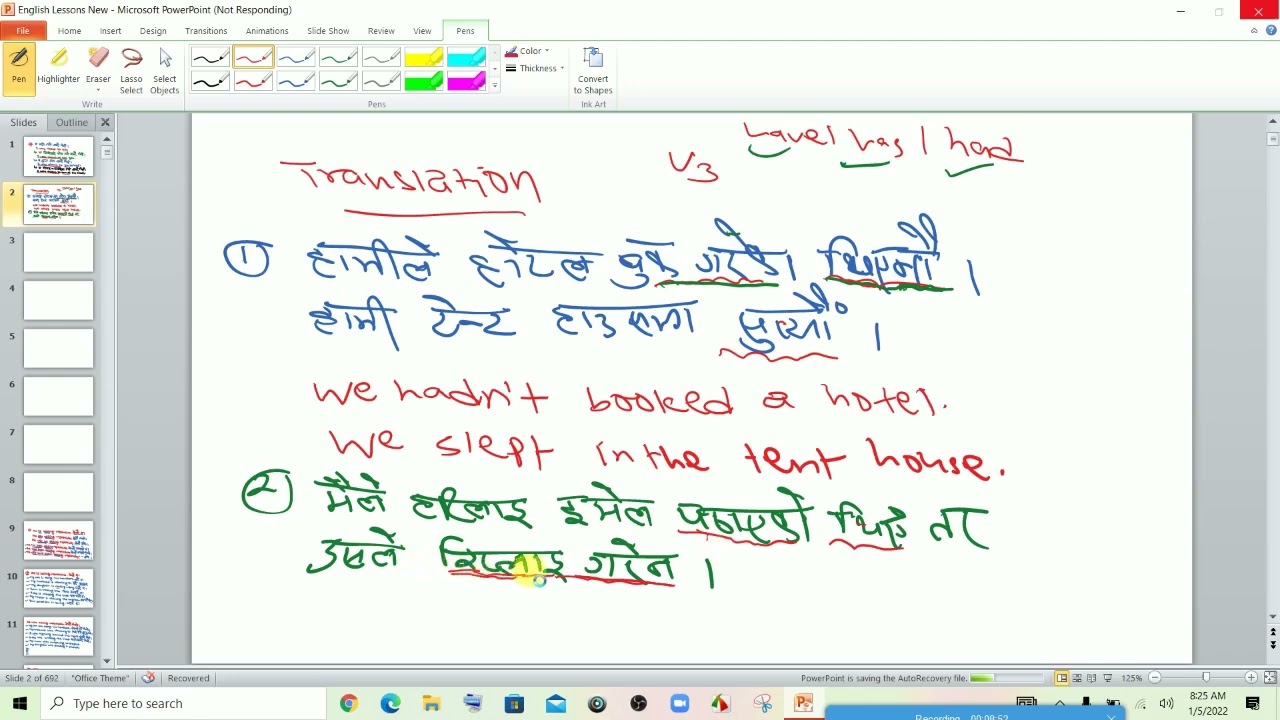 English Lessons New - Microsoft PowerPoint (Not Responding)
File Home Insert Design Transitions Animations Slide Show Review View Pens
Pen Highlighter Eraser Lasso Select Select Objects
Color
Thickness
Convert to Shapes
Write Pens Ink Art
Slides Outline
1
2
3
4
5
6
7
8
9
10
11
have | has | had
Translation V3
① हामीले होटल बुक गरेका थिएनौ ।
हामी टेन्ट हाउसमा सुत्यौं ।
we hadn't booked a hotel.
we slept in the tent house.
② मैले हरिलाइ इमेल पठाएको थिएँ तर
उसले रिप्लाइ गरेन ।
Slide 2 of 692 "Office Theme" Recovered PowerPoint is saving the AutoRecovery file. 125%
Type here to search
8:25 AM
1/5/2022
Recording 00:08:52